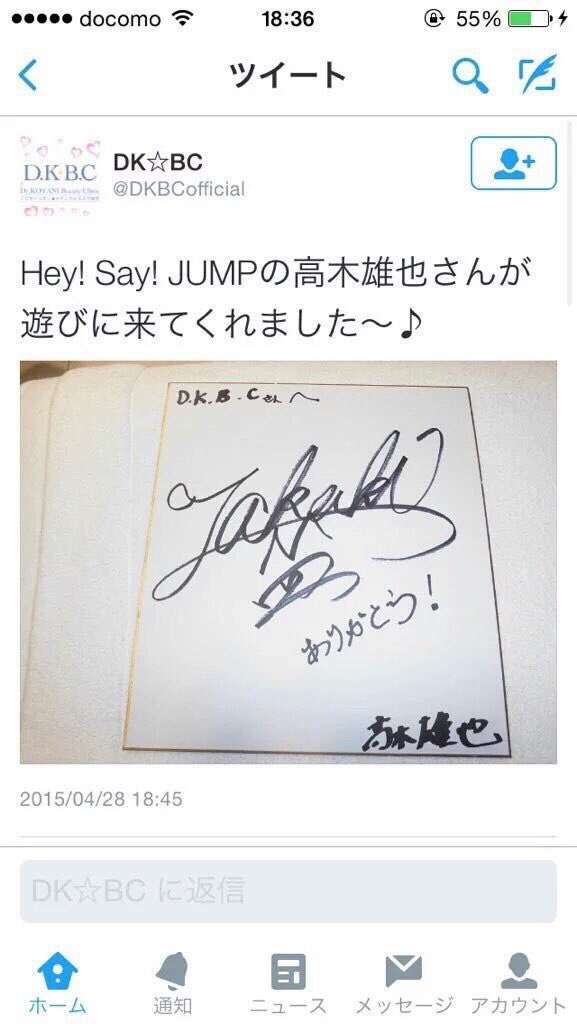 docomo 18:36 55%
ツイート
D.K☆B.C
Dr.KOYANI Beauty Clinic
DK☆BC
@DKBCofficial
Hey! Say! JUMPの高木雄也さんが
遊びに来てくれました〜♪
D.K.B.Cさんへ
Takaki
ありがとう!
高木雄也
2015/04/28 18:45
DK☆BC に返信
ホーム 通知 ニュース メッセージ アカウント